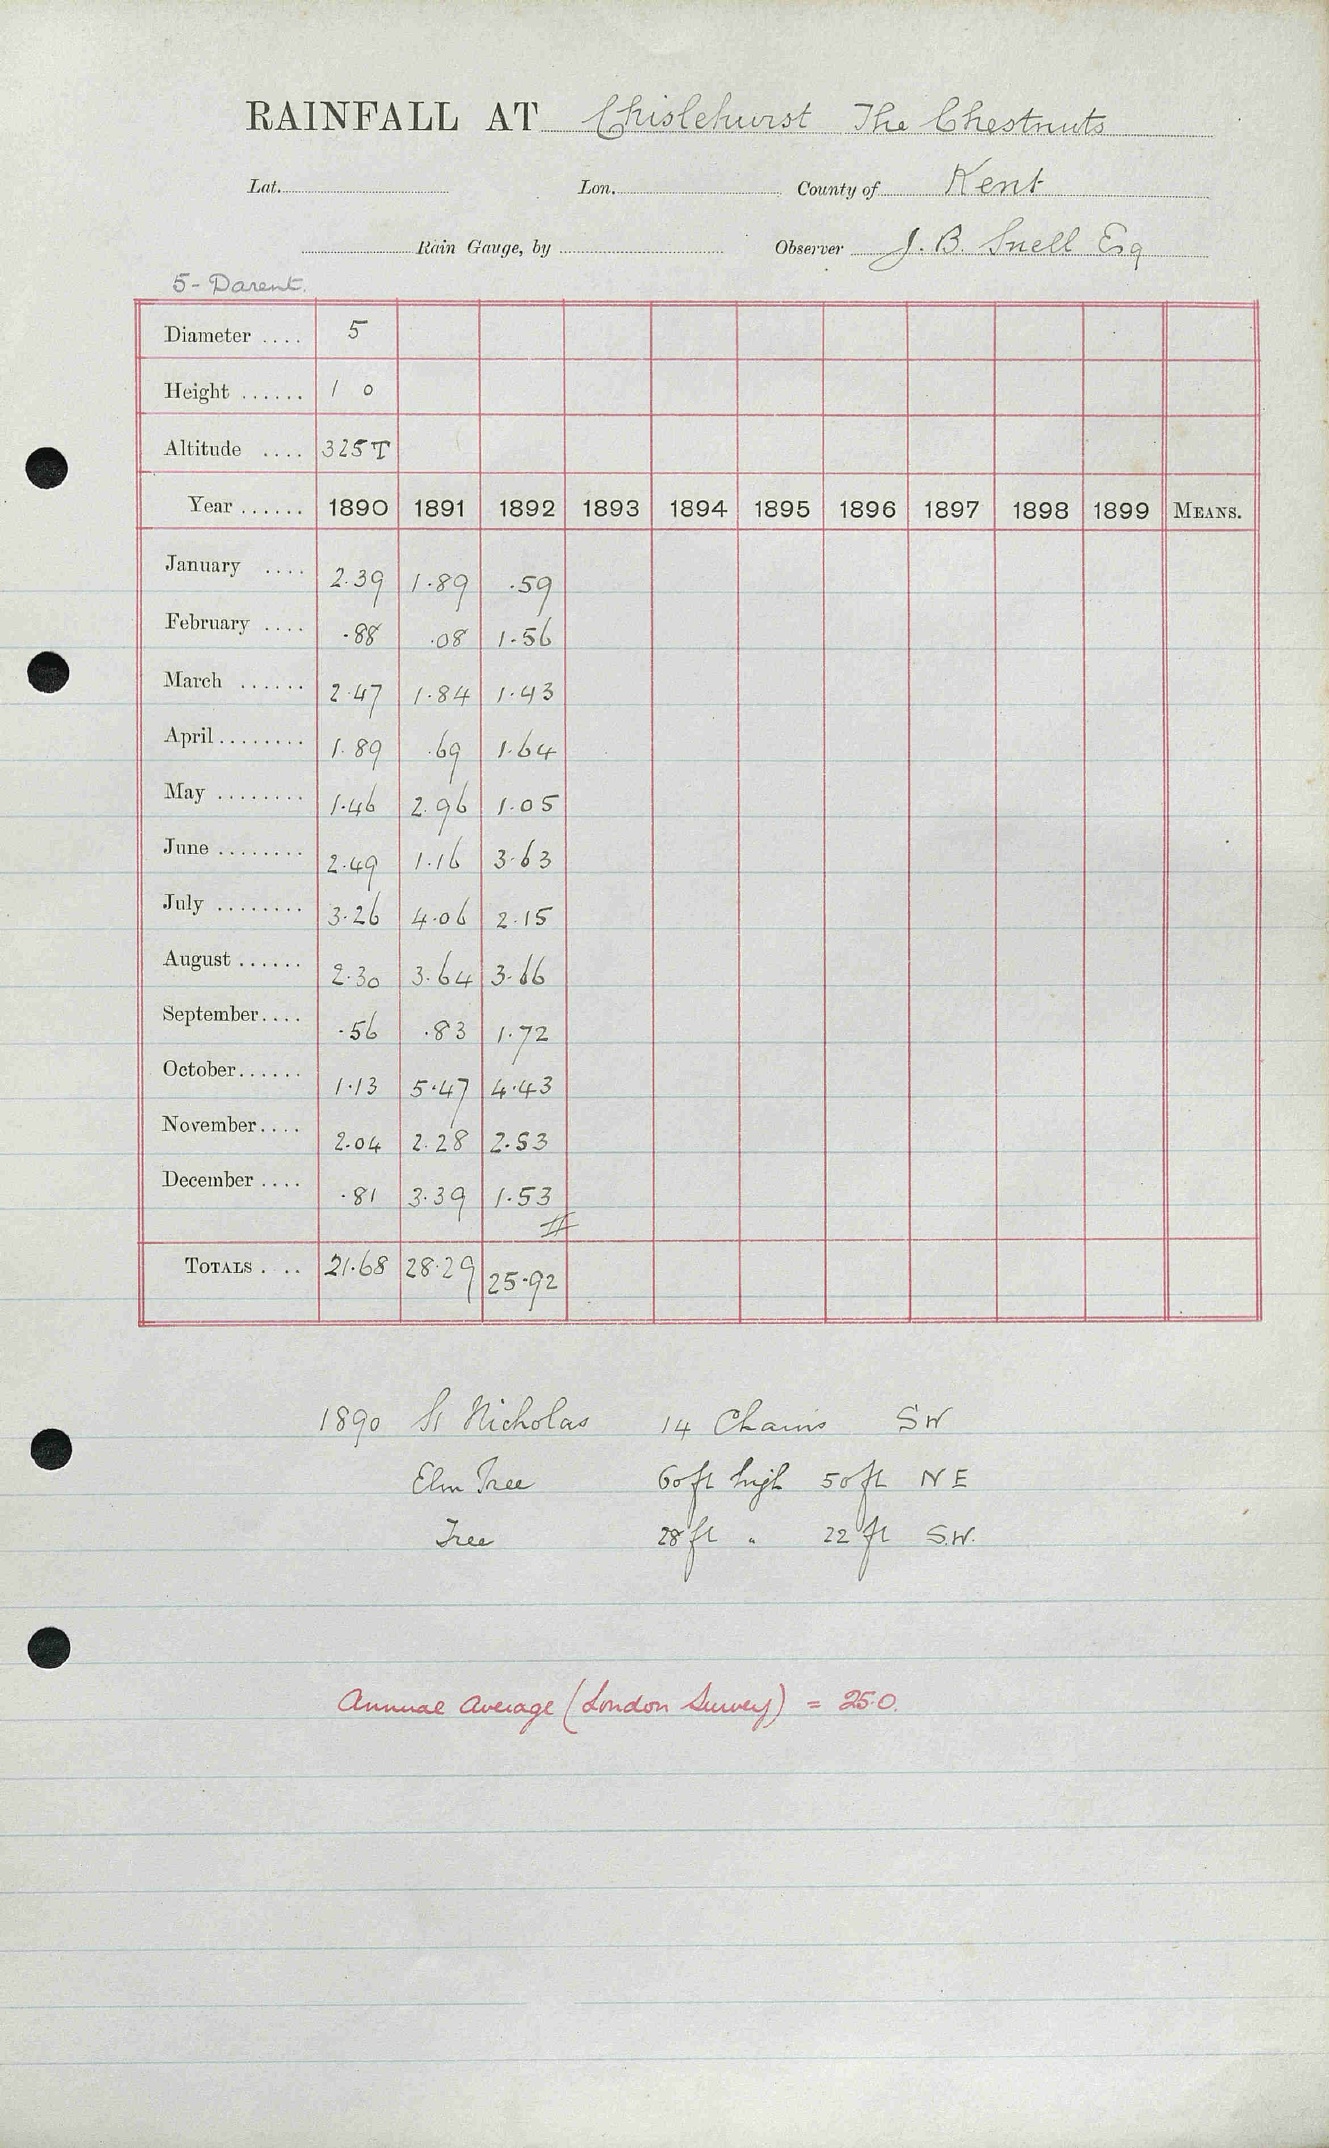 RAINFALL AT Chislehurst The Chestnuts
Lat. Lon. County of Kent
Rain Gauge, by Observer J. B. Snell Esq
5 - Darent.
Diameter .... 5
Height ...... 1 0
Altitude .... 325 T
Year ...... 1890 1891 1892 1893 1894 1895 1896 1897 1898 1899 MEANS.
January .... 2.39 1.89 .59
February .... .88 .08 1.56
March ...... 2.47 1.84 1.43
April ........ 1.89 .69 1.64
May ........ 1.46 2.96 1.05
June ........ 2.49 1.16 3.63
July ........ 3.26 4.06 2.15
August ...... 2.30 3.64 3.66
September .... .56 .83 1.72
October ...... 1.13 5.47 4.43
November .... 2.04 2.28 2.53
December .... .81 3.39 1.53
TOTALS .... 21.68 28.29 25.92
1890 St Nicholas 14 Chains SW
Elm Tree 60 ft high 50 ft NE
Tree 28 ft " 22 ft S.W.
Annual Average (London Survey) = 25.0.